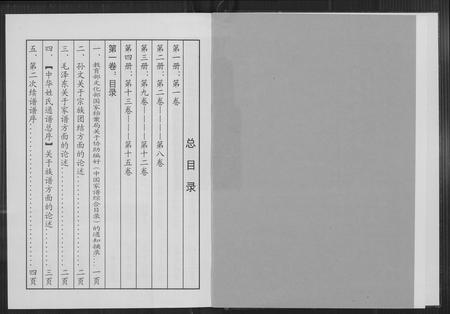 总目录
第一册：第一卷
第二册：第二卷——第八卷
第三册：第九卷——第十二卷
第四册：第十三卷——第十五卷
第一卷：目录
一、教育部文化部国家档案局关于协助编好《中国家谱综合目录》的通知摘录…一页
二、孙文关于宗族团结方面的论述…………二页
三、毛泽东关于家谱方面的论述…………二页
四、【中华姓氏通谱总序】关于族谱方面的论述…………三页
五、第二次续谱谱序…………四页